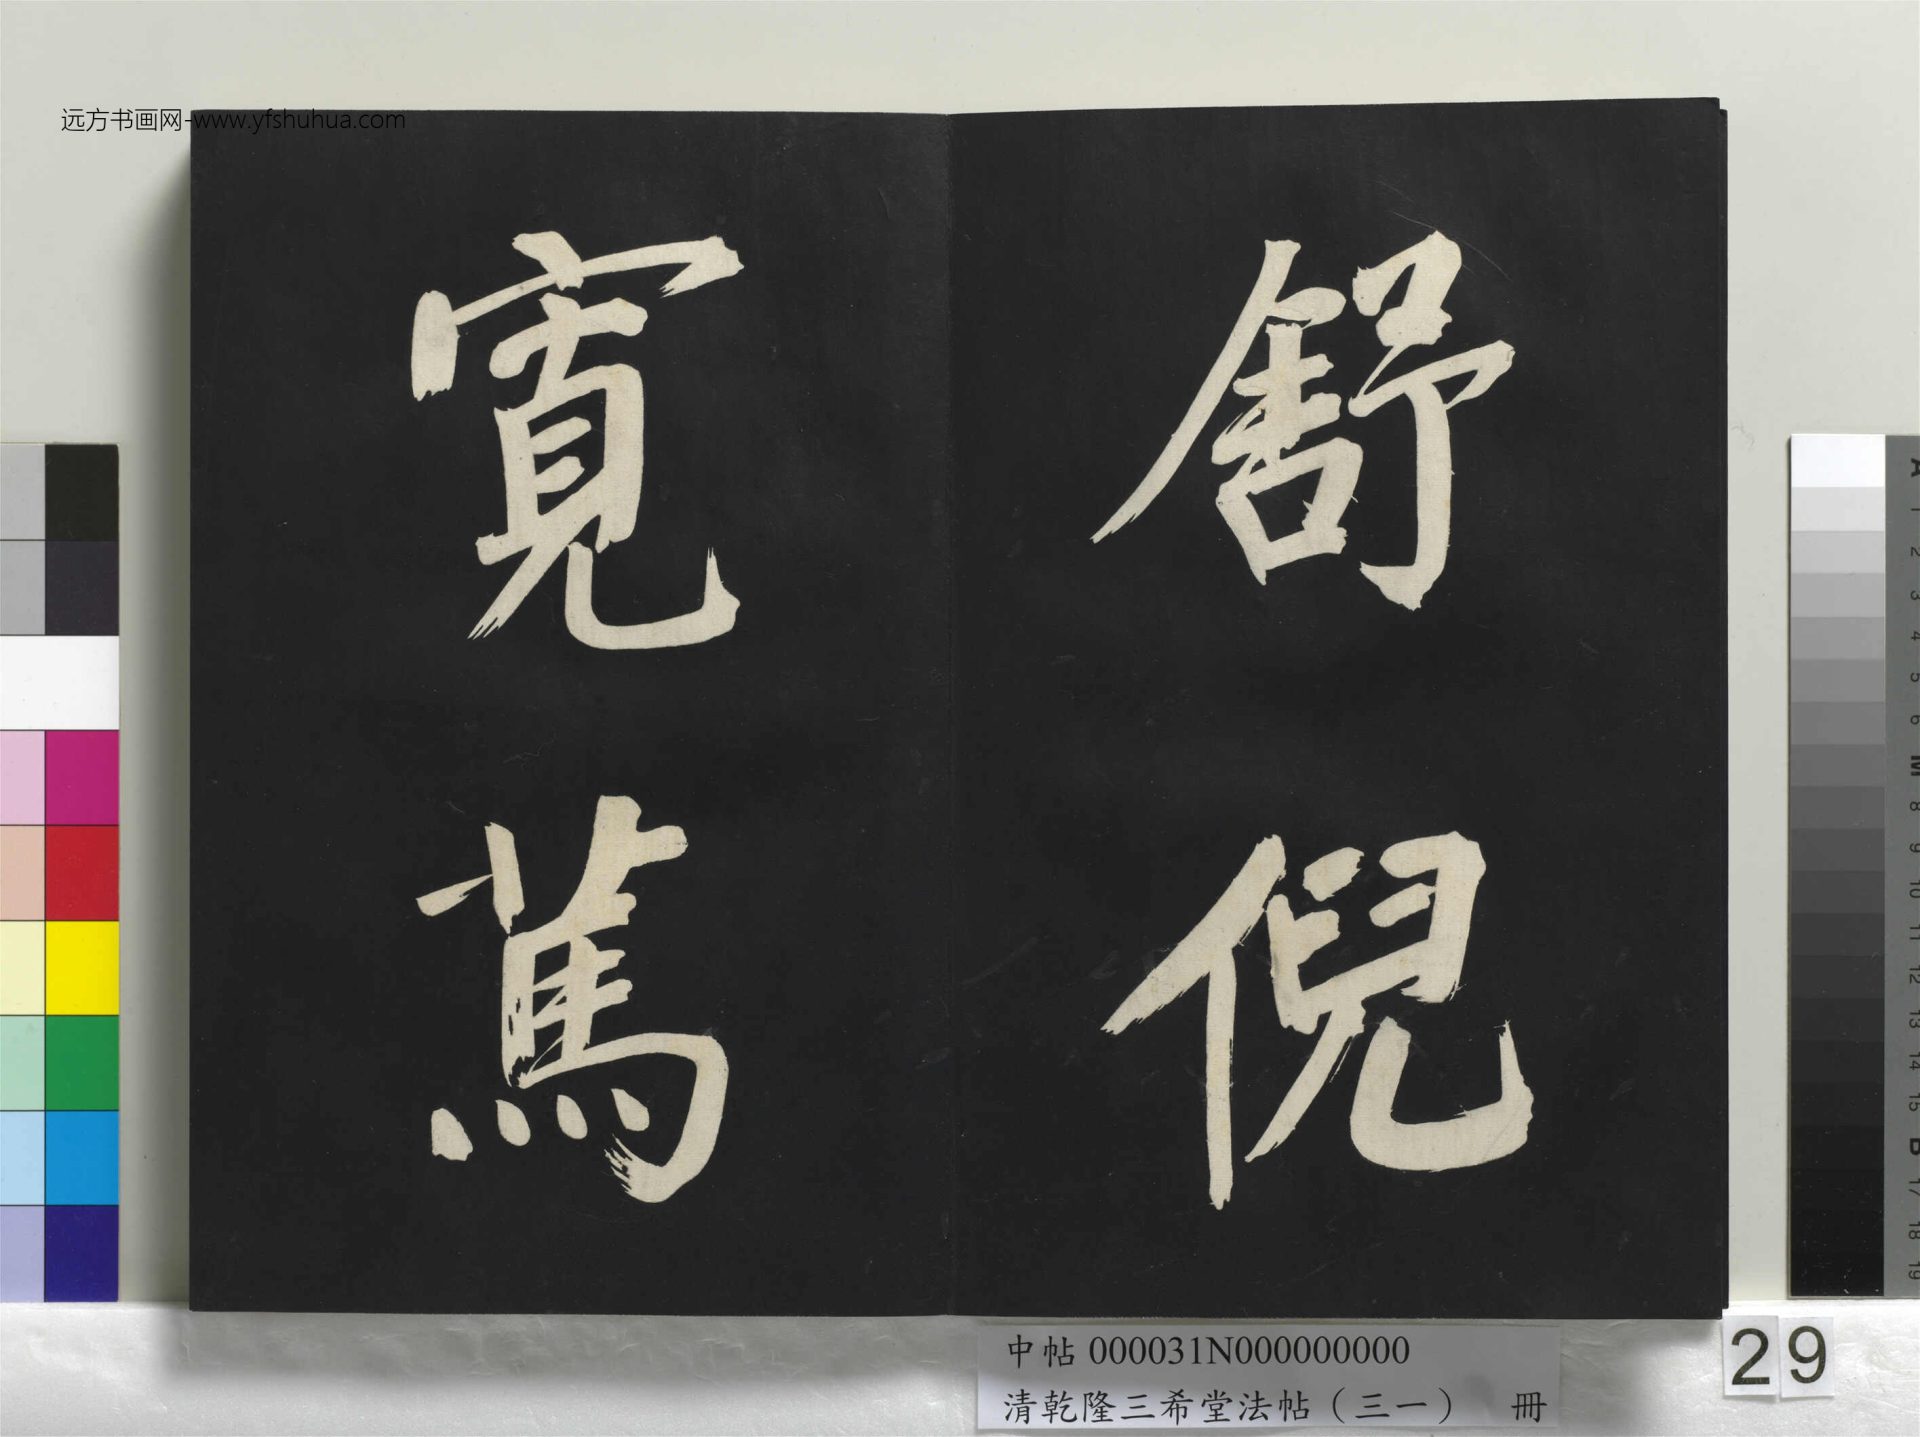 远方书画网-www.yfshuhua.com
舒倪
寬篤
中帖 000031N000000000
清乾隆三希堂法帖（三一） 冊
29
A
1
2
3
4
5
6
M
8
9
10
11
12
13
14
15
B
17
18
19